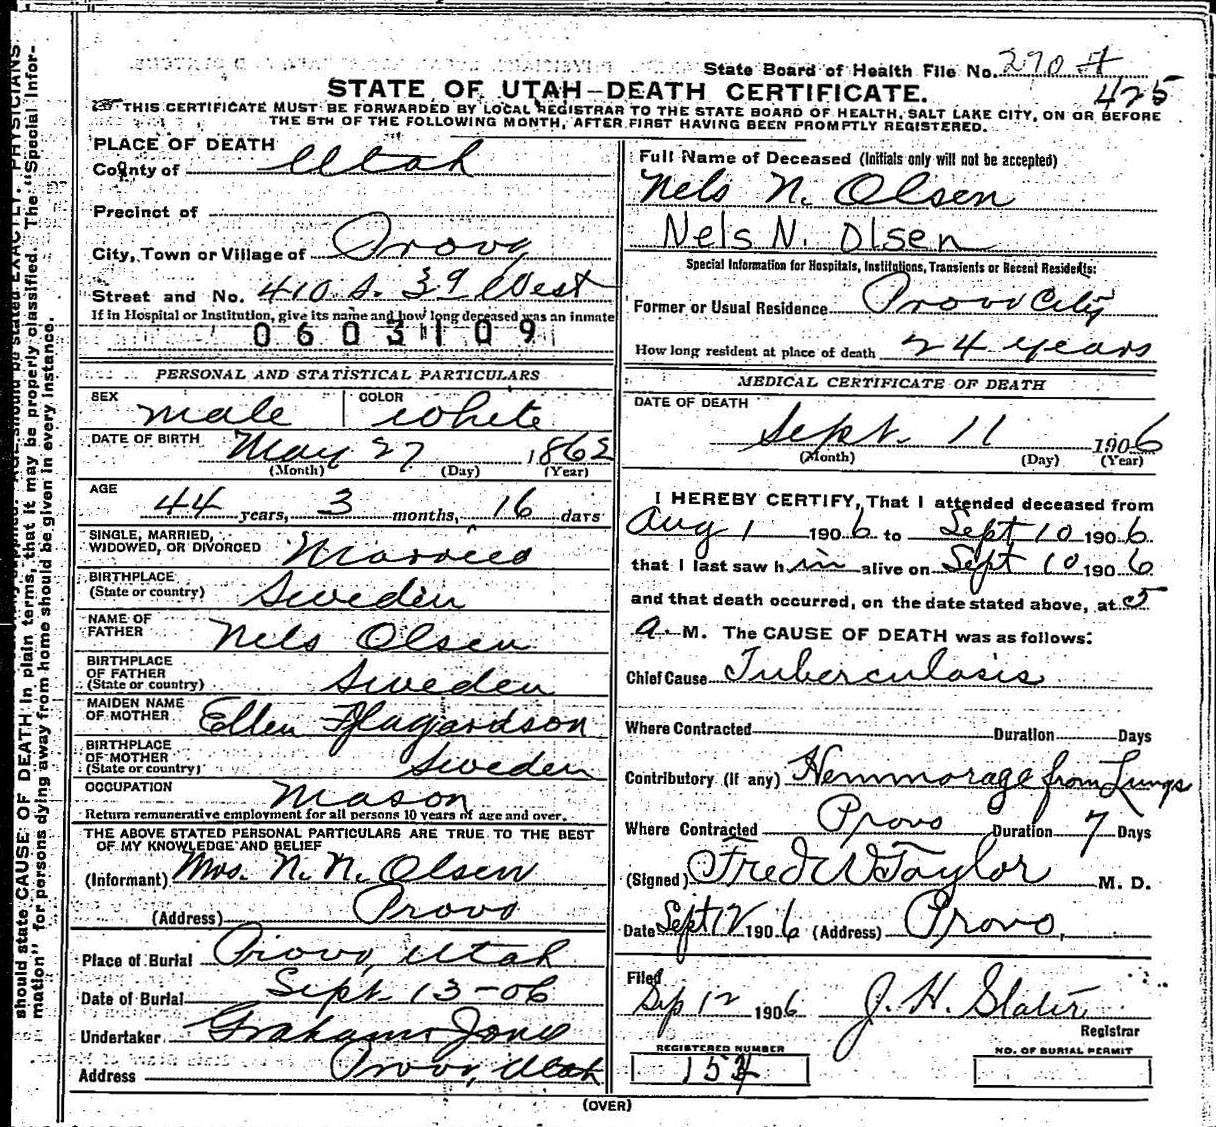 State Board of Health File No. 270 A
425
STATE OF UTAH–DEATH CERTIFICATE.
THIS CERTIFICATE MUST BE FORWARDED BY LOCAL REGISTRAR TO THE STATE BOARD OF HEALTH, SALT LAKE CITY, ON OR BEFORE
THE 5TH OF THE FOLLOWING MONTH, AFTER FIRST HAVING BEEN PROMPTLY REGISTERED.
PLACE OF DEATH
County of Utah
Precinct of
City, Town or Village of Provo
Street and No. 410 S. 3d West
If in Hospital or Institution, give its name and how long deceased was an inmate
0603109
PERSONAL AND STATISTICAL PARTICULARS
SEX male COLOR white
DATE OF BIRTH May 27 1862
(Month) (Day) (Year)
AGE
44 years, 3 months, 16 days
SINGLE, MARRIED,
WIDOWED, OR DIVORCED Married
BIRTHPLACE
(State or country) Sweden
NAME OF
FATHER Nels Olsen
BIRTHPLACE
OF FATHER
(State or country) Sweden
MAIDEN NAME
OF MOTHER Ellen
BIRTHPLACE
OF MOTHER
(State or country) Sweden
OCCUPATION Mason
Return remunerative employment for all persons 10 years of age and over.
THE ABOVE STATED PERSONAL PARTICULARS ARE TRUE TO THE BEST
OF MY KNOWLEDGE AND BELIEF
(Informant) Mrs. N. N. Olsen
(Address) Provo
Place of Burial Provo, Utah
Date of Burial Sept. 13-06
Undertaker Graham Jones
Address Provo, Utah
Full Name of Deceased (Initials only will not be accepted)
Nels N. Olsen
Nels N. Olsen
Special Information for Hospitals, Institutions, Transients or Recent Residents:
Former or Usual Residence Provo City
How long resident at place of death 24 years
MEDICAL CERTIFICATE OF DEATH
DATE OF DEATH
Sept. 11 1906
(Month) (Day) (Year)
I HEREBY CERTIFY, That I attended deceased from
Aug 1 1906 to Sept 10 1906.
that I last saw him alive on Sept 10 1906
and that death occurred, on the date stated above, at 5
a. M. The CAUSE OF DEATH was as follows:
Chief Cause Tuberculosis
Where Contracted Duration Days
Contributory (if any) Hemmorage from Lungs
Where Contracted Provo Duration 7 Days
(Signed) Fred W Taylor M. D.
Date Sept 12 1906 (Address) Provo,
Filed
Sep 12 1906 J. H. Slater
Registrar
REGISTERED NUMBER
NO. OF BURIAL PERMIT
(OVER)
should state CAUSE OF DEATH in plain terms, that it may be properly classified. The "Special Infor-
mation" for persons dying away from home should be given in every instance.